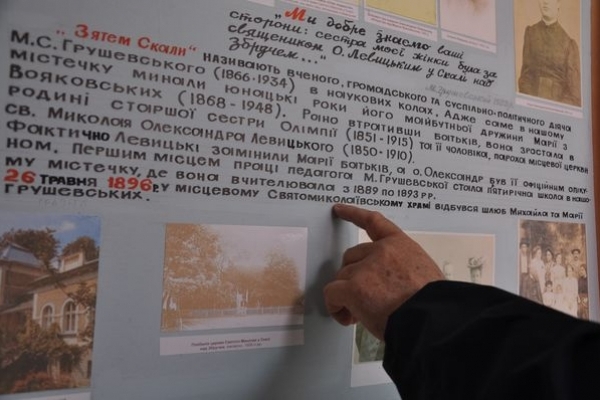 "Ми добре знаємо ваші
сторони: сестра моєї жінки була за
священиком О. Левицьким у Скалі над
Збручем..."
"Зятем Скали" називають вченого, громадського та суспільно-політичного діяча
М.С. Грушевського (1866-1934) в наукових колах. Адже саме в нашому
містечку минали юнацькі роки його майбутньої дружини Марії з
Вояковських (1868-1948). Рано втративши батьків, вона зростала в
родині старшої сестри Олімпії (1851-1915) та її чоловіка, пароха місцевої церкви
св. Миколая Олександра Левицького (1850-1910).
Фактично Левицькі замінили Марії батьків, а о. Олександр був її офіційним опіку-
ном. Першим місцем праці педагога М. Грушевської стала п'ятирічна школа в нашо-
му містечку, де вона вчителювала з 1889 по 1893 рр.
26 травня 1896 р. у місцевому Святомиколаївському храмі відбувся шлюб Михайла та Марії
Грушевських.